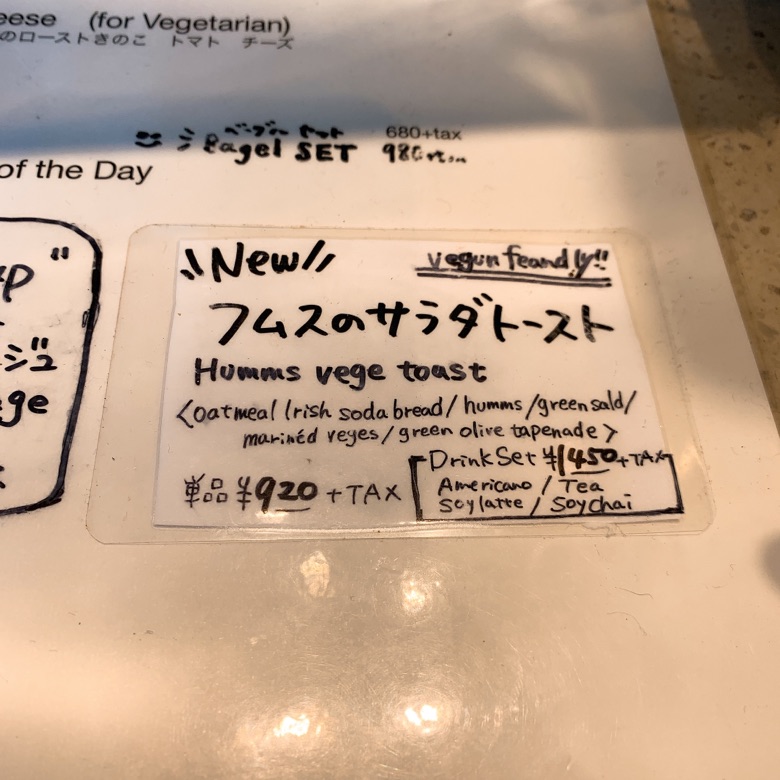 eese (for Vegetarian)
のローストきのこ トマト チーズ
ベーグル セット 680+tax
Bagel SET 980+tax
of the Day
New
vegun feandly!!
フムスのサラダトースト
Humms vege toast
<oatmeal Irish soda bread/ humms /green sald/
marinéd veyes/green olive tapenade>
Drink Set ¥1450+TAX
単品 ¥920 +TAX
Americano / Tea
Soylatte / Soychai
ージュ
ge